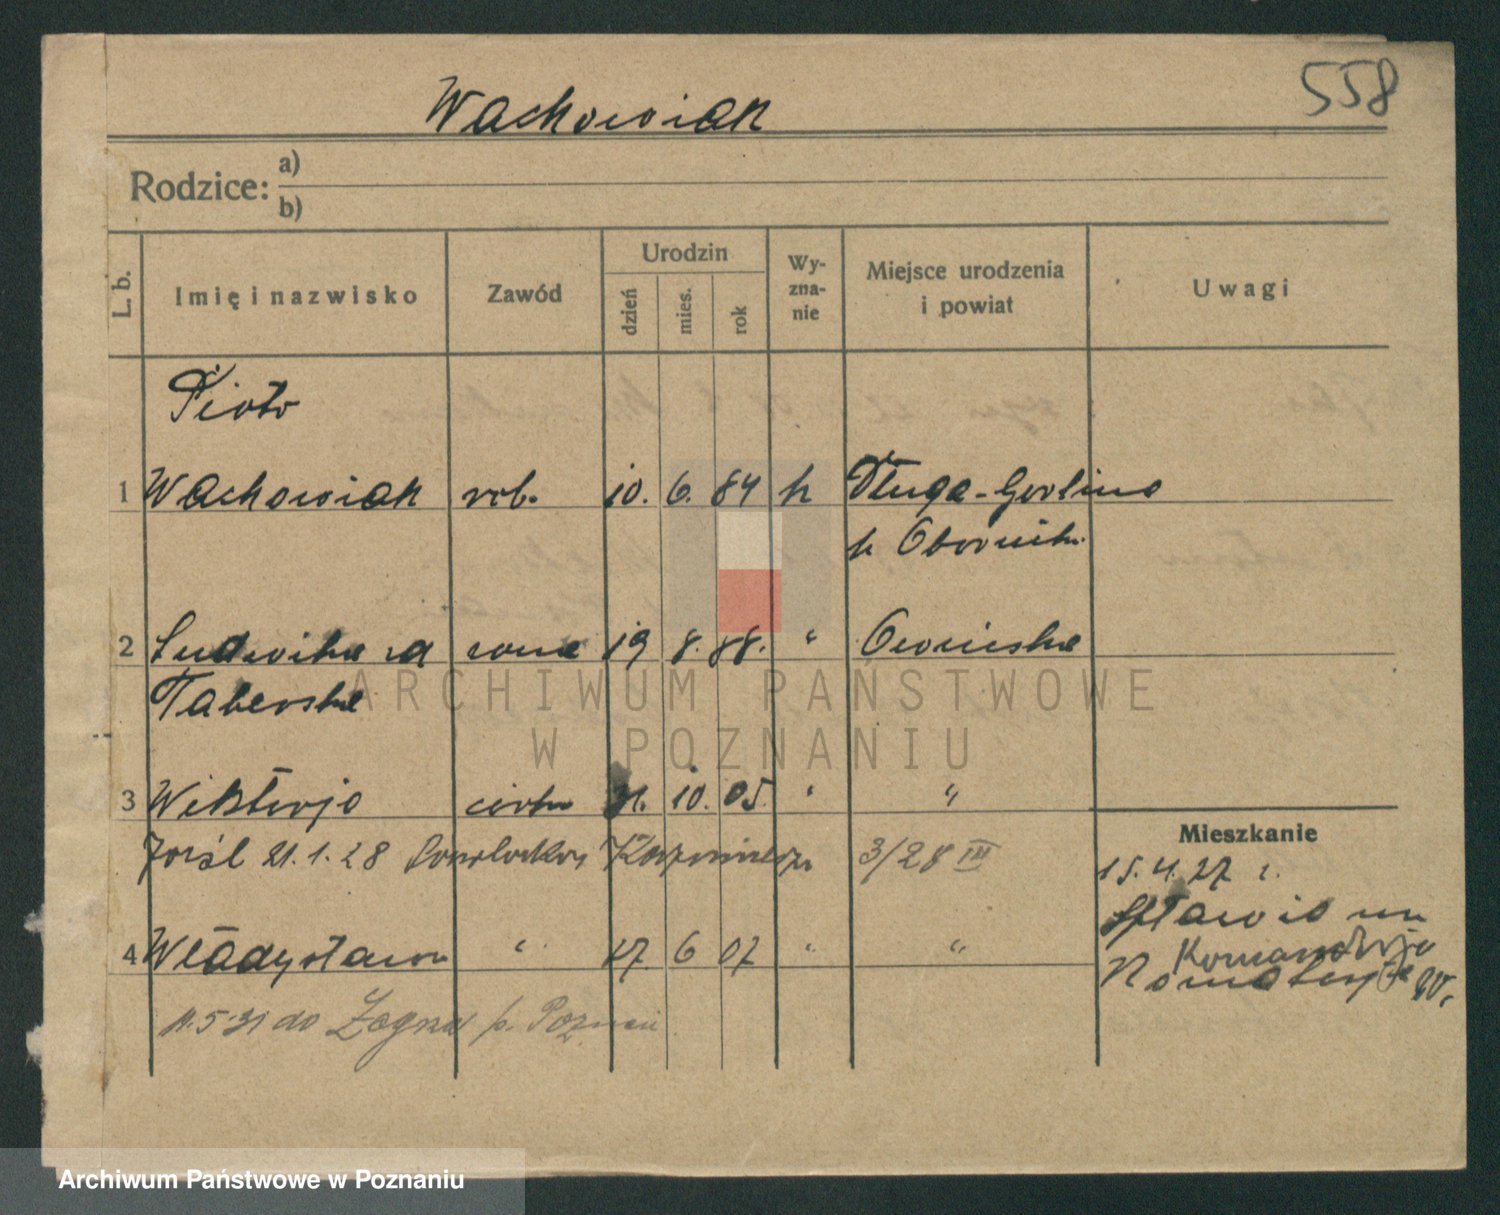 558
Wachowiak
Rodzice: a)
b)
L. b. Imię i nazwisko Zawód Urodzin dzień mies. rok Wyznanie Miejsce urodzenia i powiat Uwagi
Piotr
1 Wachowiak rob. 10. 6. 84 k Długa-Goślina
p. Oborniki
2 Ludwika zd żona 19 8. 88. " Owińska
Taberska
3 Wiktorja córka 21. 10. 05. " "
21.1.28 Kazimierz 3/28 III
4 Władysława " 17. 6 07 " "
11.5.31 do p. Poznań
Mieszkanie
15.4.27 r.
Komandorja
ARCHIWUM PAŃSTWOWE
W POZNANIU
Archiwum Państwowe w Poznaniu